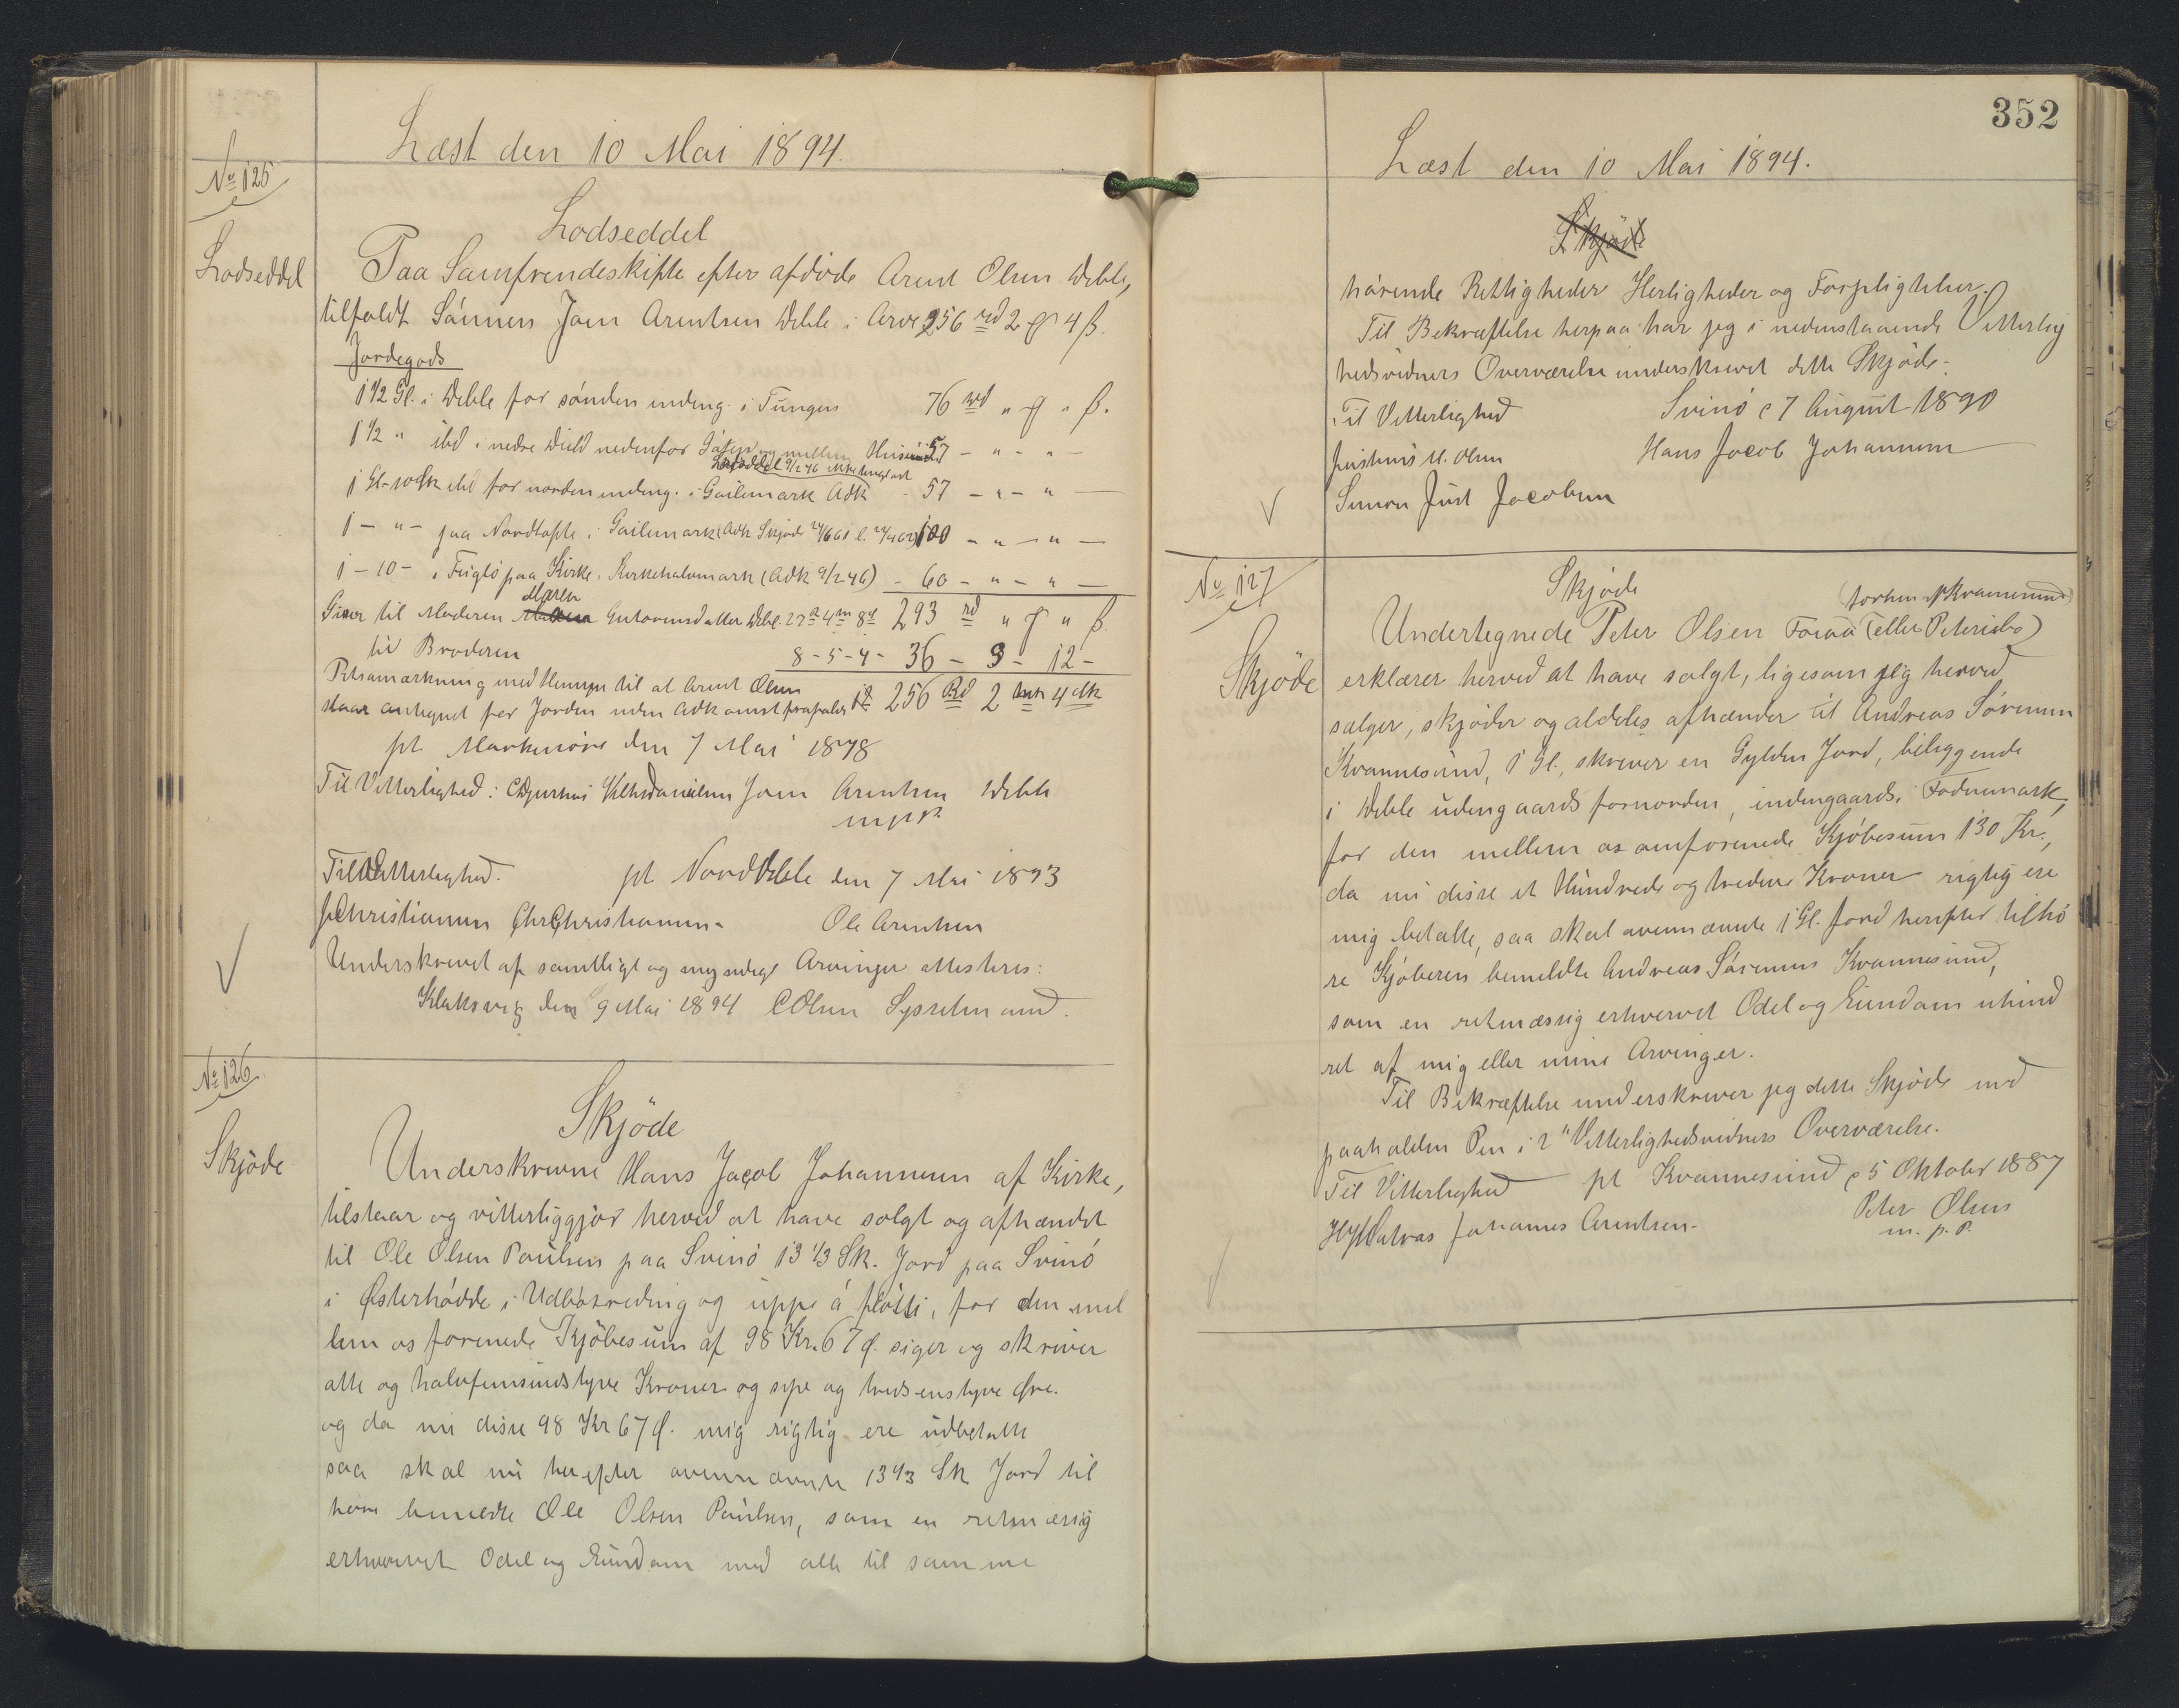 Læst den 10 Mai 1894.
No 125
Lodseddel
Lodseddel
Paa Samfrendeskifte efter afdøde Arent Olsen Deble,
tilfaldt Sønnen Joen Arentsen Deble i Arv 256 rd 2 ₰ 4 β.
Jordegods
1 1/2 Gl. i Deble for sønden indeng. i Tungen 76 rd " ₰ " β.
1 1/2 " ibd i nedre Dield nedenfor og mellem 57 - " - " -
1 Gl - 10 Sk ibd for norden indeng. i Gailemark Adk - 57 - " - " -
1 - " - paa Nordtofte i Gailemark (Adk Skjøde 100 - " - " -
1 - 10 - i Fuglø paa Kirke i Kirkehalvmark (Adk 9/2 46) - 60 - " - " -
Giver til Moderen Maren Guttormsdatter Deble 27 4 m 8 293 rd " ₰ " β.
til Broderen 8 - 5 - 4 - 36 - 3 - 12 -
Retsanmærkning med Hensyn til at Arent Olsen
staar antegnet for Jorden uden Adkomst 256 Rd 2 4
pt Markenøre den 7 Mai 1878
Til Vitterlighed: Joen Arentsen Deble
mpp.
Til Vitterlighed. pt NordDeble den 7 Mai 1893
JChristiansen Chr Christiansen - Ole Arentsen
Underskrevet af samtlige og myndige Arvinger attesteres:
Klaksvig den 9 Mai 1894 COlsen Sysselmand.
No 126
Skjøde
Skjøde
Underskrevne Hans Jacob Johannesen af Kirke,
tilstaar og vitterliggjør herved at have solgt og afhændet
til Ole Olsen Poulsen paa Svinø 13 1/3 Sk. Jord paa Svinø
i Østerhådde i Udbøsreding og uppi á fløtti, for den mel
lem os forenede Kjøbesum af 98 Kr. 67 Ø. siger og skriver
otte og halvfemsindstyve Kroner og syv og tredsenstyve Øre.
og da nu disse 98 Kr 67 Ø. mig rigtig ere udbetalte
saa skal nu herefter ovennævnte 13 1/3 Sk Jord til
høre bemeldte Ole Olsen Poulsen, som en retmæsig
erhvervet Odel og Eiendom med alle til samme
352
Læst den 10 Mai 1894.
Skjøde
hørende Rettigheder Herligheder og Forpligtelser.
Til Bekræftelse herpaa har jeg i nedenstaaende Vitterlig
hedsvidners Overværelse underskrevet dette Skjøde.
Til Vitterlighed Svinø d 7 August 1890
Justinus M. Olsen Hans Jacob Johannesen
Simon Just Jacobsen
No 127
Skjøde
Skjøde
(forhen af Kvannesund)
Undertegnede Peter Olsen Foraa (eller Petersbo)
erklærer herved at have solgt, ligesom jeg herved
sælger, skjøder og aldeles afhænder til Andreas Sørensen
Kvannesund, 1 Gl., skriver en Gylden Jord, beliggende
i Deble udengaards fornorden, indengaards i Fodnemark,
for den mellem os omforenede Kjøbesum 130 Kr.,
da nu disse et Hundrede og tredive Kroner rigtig ere
mig betalte, saa skal ovennævnte 1 Gl. Jord herefter tilhø
re Kjøberen bemeldte Andreas Sørensen Kvannesund,
som en retmæssig erhvervet Odel og Eiendom uhind
ret af mig eller mine Arvinger.
Til Bekræftelse underskriver jeg dette Skjøde med
paaholden Pen i 2 " Vitterlighedsvidners Overværelse.
Til Vitterlighed pt Kvannesund d 5 Oktober 1887
Peter Olsen
Johannes Arentsen.
m. p. P.